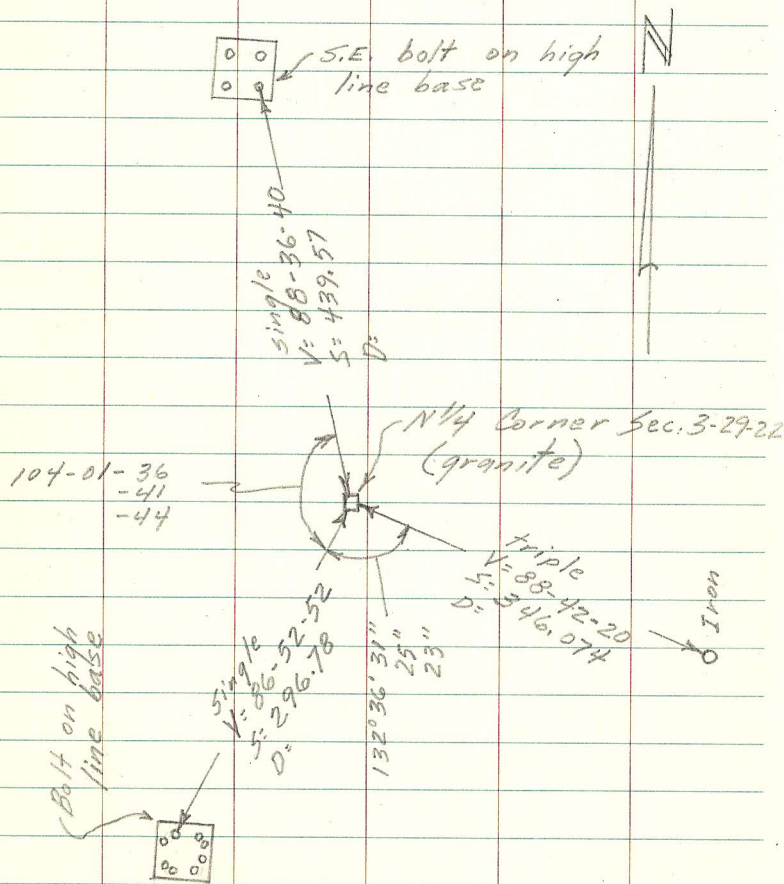 N
S.E. bolt on high
line base
single
V= 88-36-40
S= 439.57
D=
N 1/4 Corner Sec. 3-29-22
(granite)
104-01-36
-41
-44
triple
V= 88-42-20
S= 346.074
D=
Iron
132° 36' 31"
25"
23"
single
V= 86-52-52
S= 296.78
D=
Bolt on high
line base